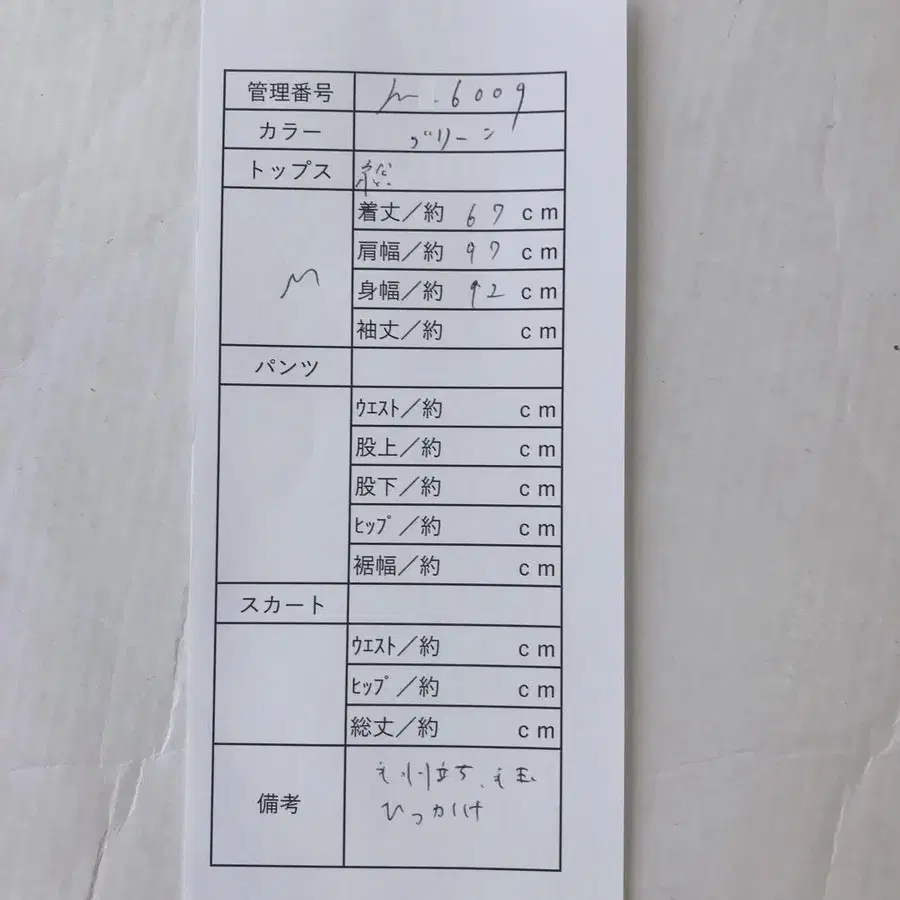 管理番号 h.6009
カラー グリーン
トップス 総
着丈／約 67 cm
肩幅／約 97 cm
M
身幅／約 92 cm
袖丈／約 cm
パンツ
ｳｴｽﾄ／約 cm
股上／約 cm
股下／約 cm
ﾋｯﾌﾟ／約 cm
裾幅／約 cm
スカート
ｳｴｽﾄ／約 cm
ﾋｯﾌﾟ／約 cm
総丈／約 cm
備考
毛羽立ち、毛玉
ひっかけ